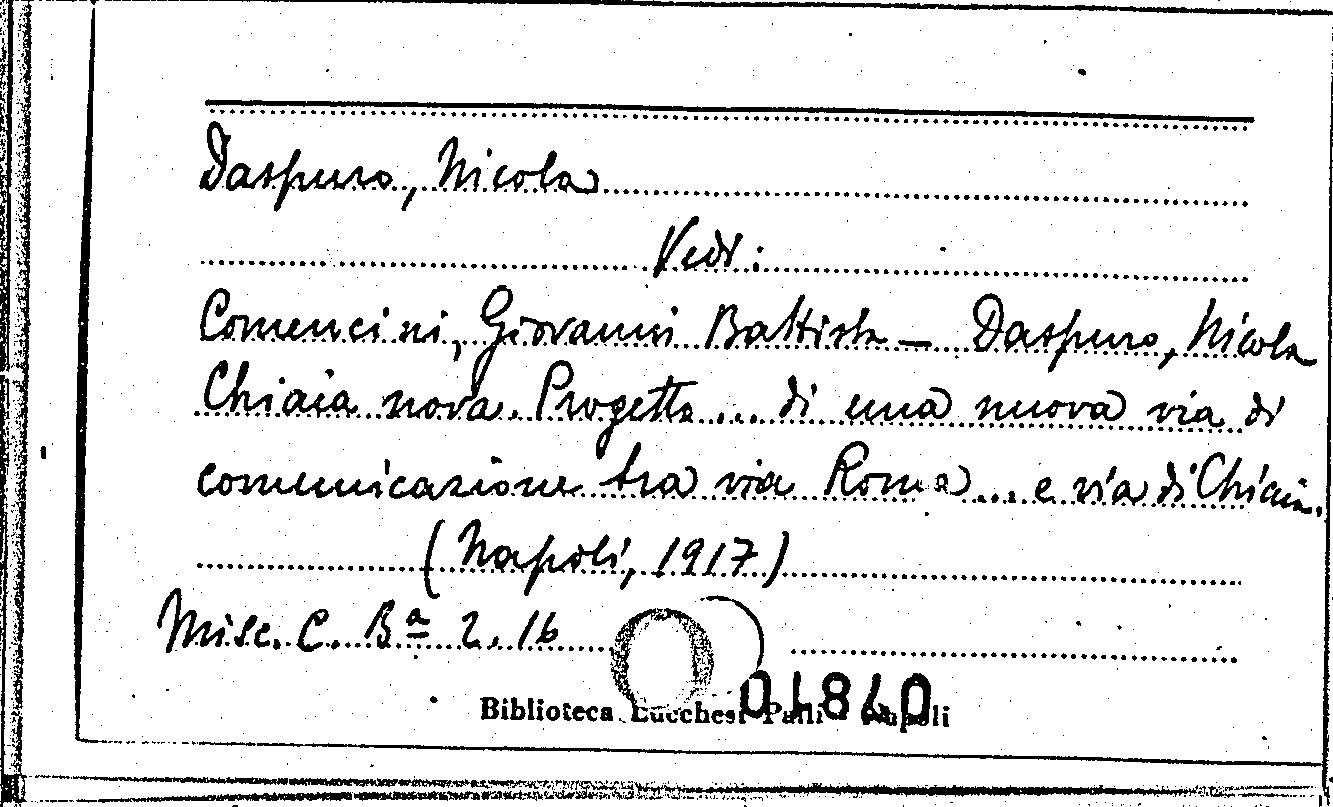 Daspuro, Nicola
Vedi:
Comencini, Giovanni Battista – Daspuro, Nicola
Chiaia nova. Progetto... di una nuova via di
comunicazione tra via Roma... e via di Chiaia.
(Napoli, 1917)
Misc. C. Bª 2. 16
Biblioteca Lucchesi Palli - Napoli